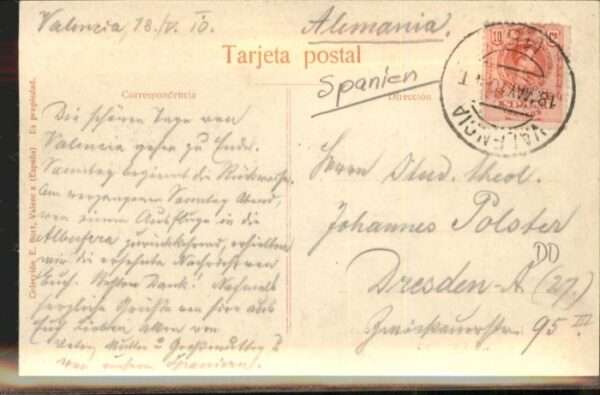 Valencia, 18./V. 10.
Alemania.
Tarjeta postal
Spanien
Correspondencia
Dirección
Die schönen Tage von
Valencia gehen zu Ende.
Sonntag beginnt die Rückreise.
Am vergangenen Sonntag Abend,
von einem Ausfluge in die
Albufera zurückkehrend, erhielten
wir die ersehnte Nachricht von
Euch. Besten Dank! Nochmals
herzliche Grüße von hier aus
Euch Lieben allen von
Mutter u. Großmutter
Herrn Stud. theol.
Johannes Polster
DD
Dresden-A (27.)
Zwickauerstr. 95 III
Colección E. Valencia (España) Es propiedad.
10 10
VALENCIA
18 MAY